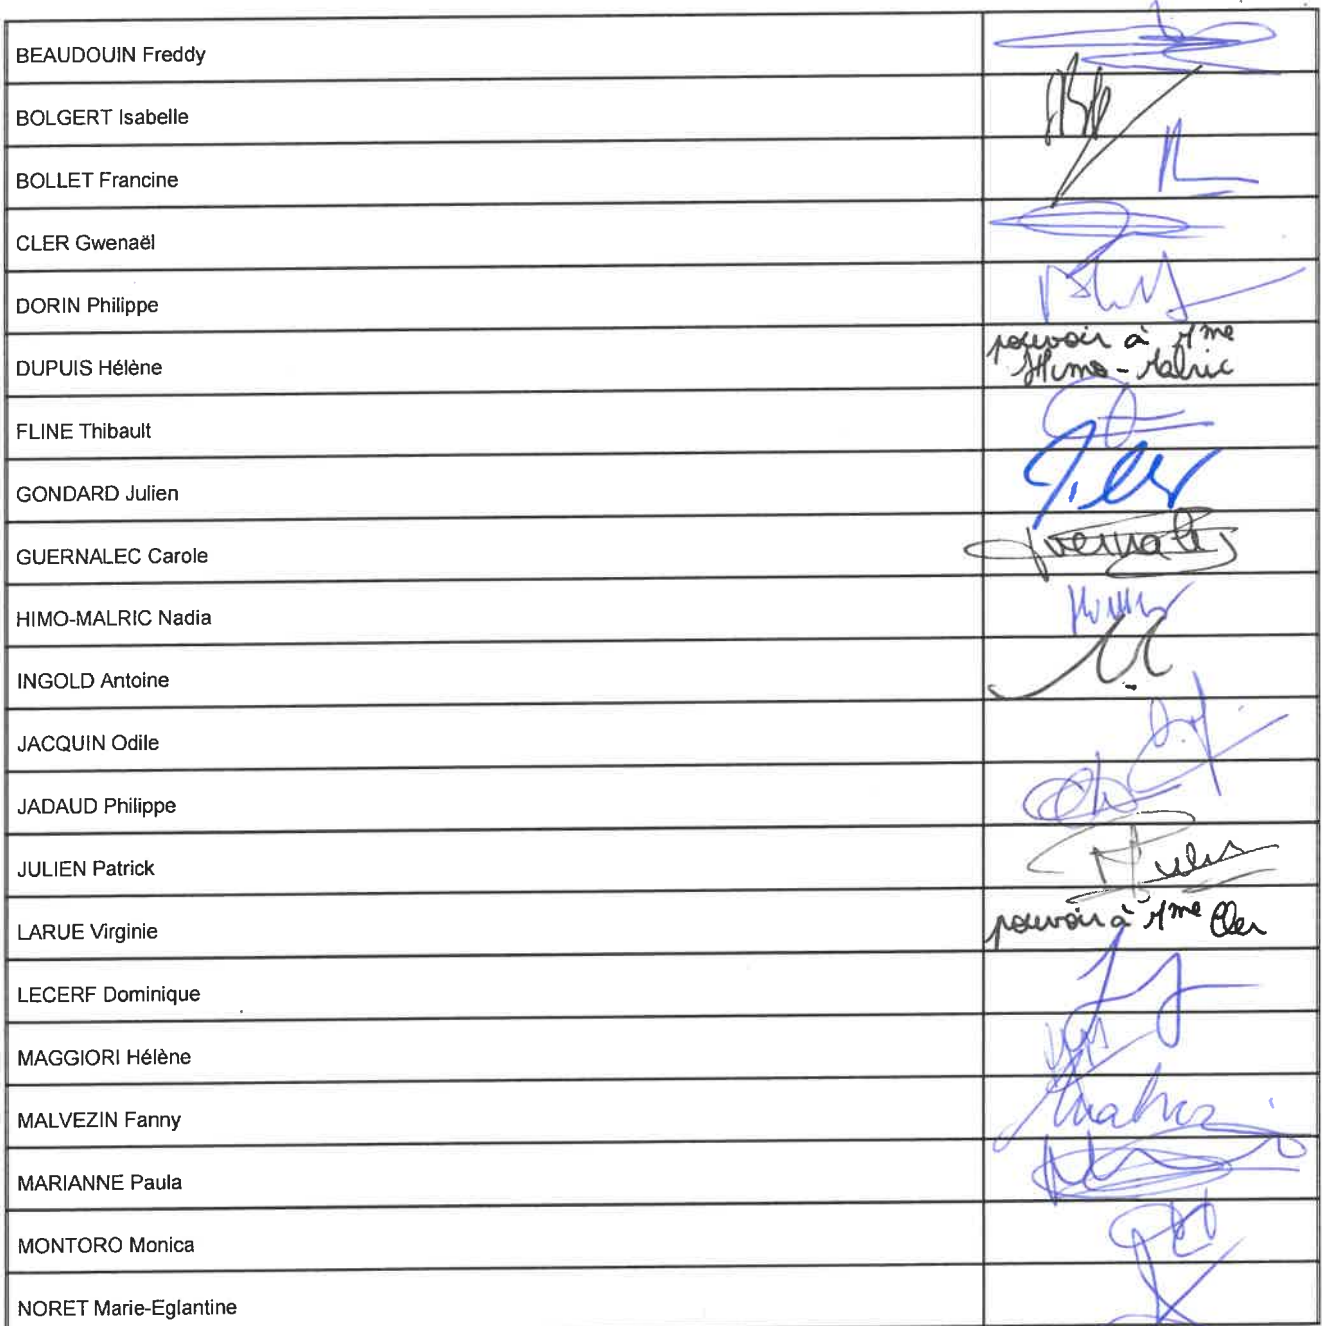 BEAUDOUIN Freddy
BOLGERT Isabelle
BOLLET Francine
CLER Gwenaël
DORIN Philippe
DUPUIS Hélène
pouvoir à Mme
Himo-Malric
FLINE Thibault
GONDARD Julien
GUERNALEC Carole
HIMO-MALRIC Nadia
INGOLD Antoine
JACQUIN Odile
JADAUD Philippe
JULIEN Patrick
LARUE Virginie
pouvoir à Mme Cler
LECERF Dominique
MAGGIORI Hélène
MALVEZIN Fanny
MARIANNE Paula
MONTORO Monica
NORET Marie-Eglantine